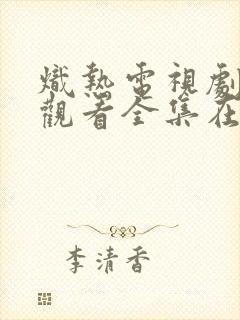 熾熱電視劇
觀看全集在
李清香